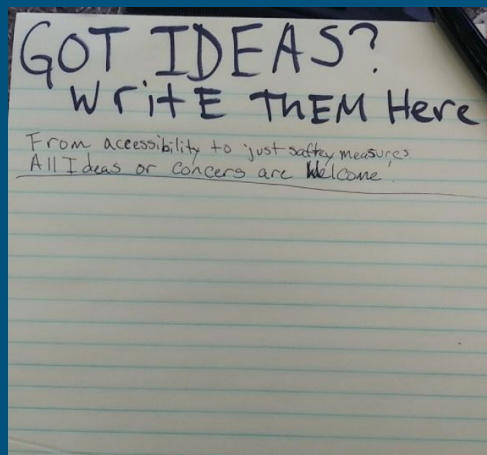 GOT IDEAS?
WritE ThEM Here
From accessibility to just saftey measures
All Ideas or concers are Welcome!